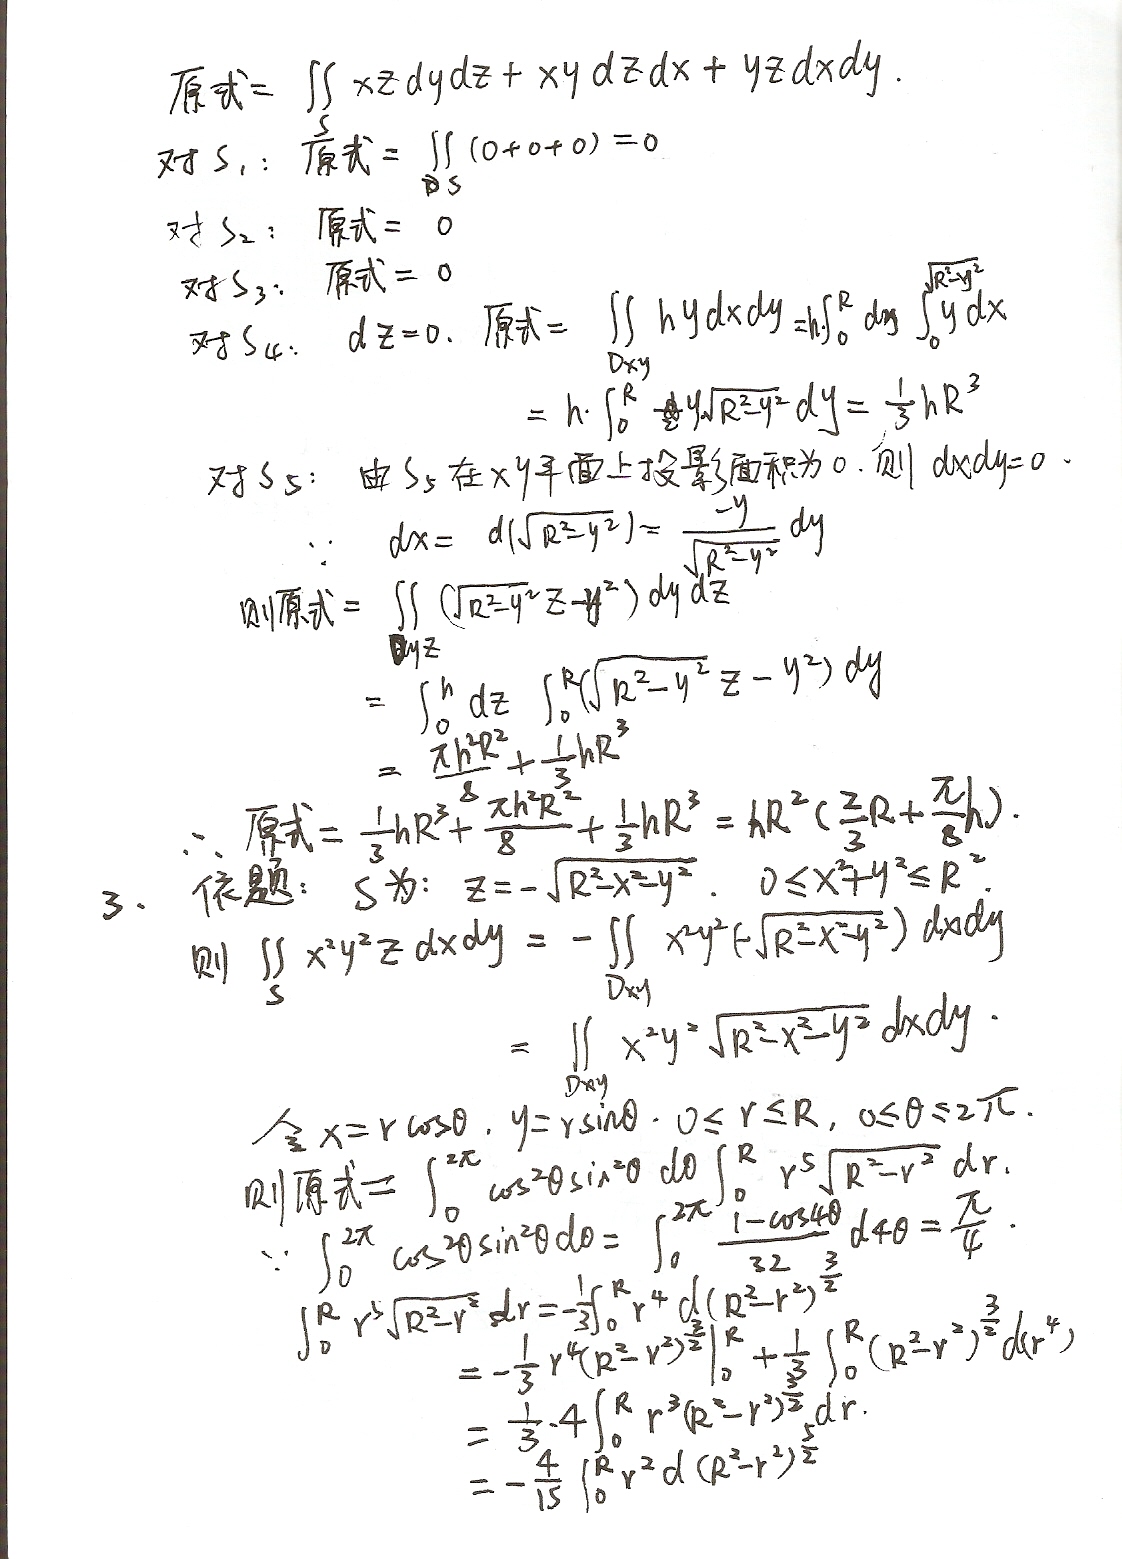 原式= ∬_S xzdydz + xydzdx + yzdxdy.
对S₁: 原式= ∬_DS (0+0+0) = 0
对S₂: 原式= 0
对S₃: 原式= 0
对S₄: dz=0. 原式= ∬_Dxy hydxdy = h·∫₀^R dy ∫₀^√(R²-y²) ydx
= h·∫₀^R y√(R²-y²) dy = 1/3 hR³
对S₅: 由S₅在xy平面上投影面积为0. 则 dxdy=0.
∵ dx= d(√(R²-y²)) = -y/√(R²-y²) dy
则原式= ∬_Dyz (√(R²-y²) z-y²) dydz
= ∫₀^h dz ∫₀^R (√(R²-y²) z - y²) dy
= πh²R²/8 + 1/3 hR³
∴ 原式= 1/3 hR³ + πh²R²/8 + 1/3 hR³ = hR² (2/3 R + π/8 h).
3. 依题: S为: z=-√(R²-x²-y²). 0≤x²+y²≤R².
则 ∬_S x²y²z dxdy = -∬_Dxy x²y²(-√(R²-x²-y²)) dxdy
= ∬_Dxy x²y² √(R²-x²-y²) dxdy.
令 x=rcosθ, y=rsinθ. 0≤r≤R, 0≤θ≤2π.
则原式= ∫₀^2π cos²θsin²θ dθ ∫₀^R r⁵√(R²-r²) dr.
∵ ∫₀^2π cos²θsin²θdθ = ∫₀^2π (1-cos4θ)/32 d4θ = π/4.
∫₀^R r⁵√(R²-r²) dr = -1/3 ∫₀^R r⁴ d(R²-r²)^(3/2)
= -1/3 r⁴(R²-r²)^(3/2) |₀^R + 1/3 ∫₀^R (R²-r²)^(3/2) d(r⁴)
= 1/3·4 ∫₀^R r³(R²-r²)^(3/2) dr.
= -4/15 ∫₀^R r² d(R²-r²)^(5/2)